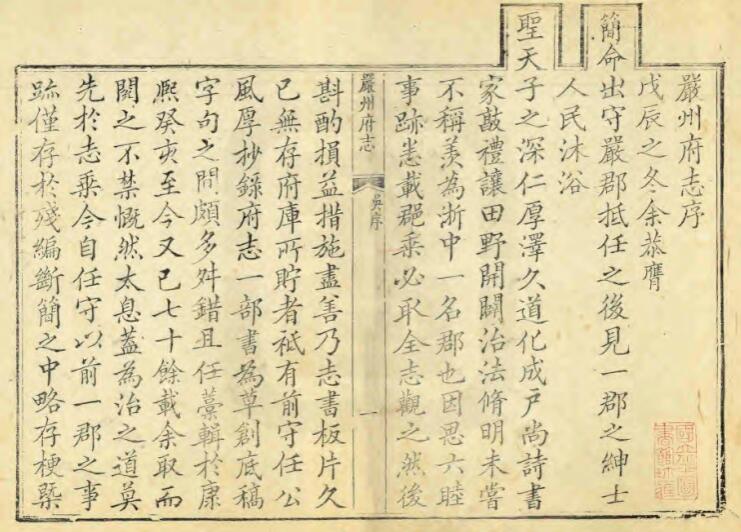 嚴州府志序
戊辰之冬余恭膺
簡命出守嚴郡抵任之後見一郡之紳士
人民沐浴
聖天子之深仁厚澤久道化成戸尚詩書
家敦禮讓田野開闢治法脩明未嘗
不稱羨為浙中一名郡也因思六睦
事跡悉載郡乗必取全志觀之然後
嚴州府志
吳序
一
斟酌損益措施盡善乃志書板片久
已無存府庫所貯者祗有前守任公
風厚抄錄府志一部書為草創底稿
字句之間頗多舛錯且任藁輯於康
熈癸亥至今又已七十餘載余取而
閱之不禁慨然太息蓋為治之道莫
先於志乗今自任守以前一郡之事
跡僅存於殘編斷簡之中略存梗槩